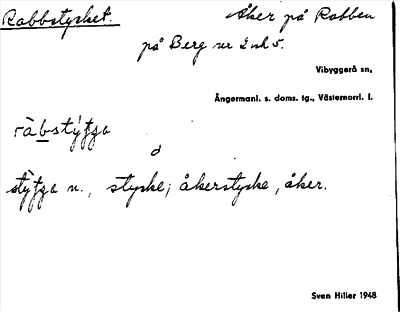 Rabbstycket. Åker på Rabben
på Berg nr 2 och 5.
Vibyggerå sn,
Ångermanl. s. doms. tg., Västernorrl. l.
ràbstýtja
d
stỳtja n., stycke; åkerstycke, åker.
Sven Hiller 1948